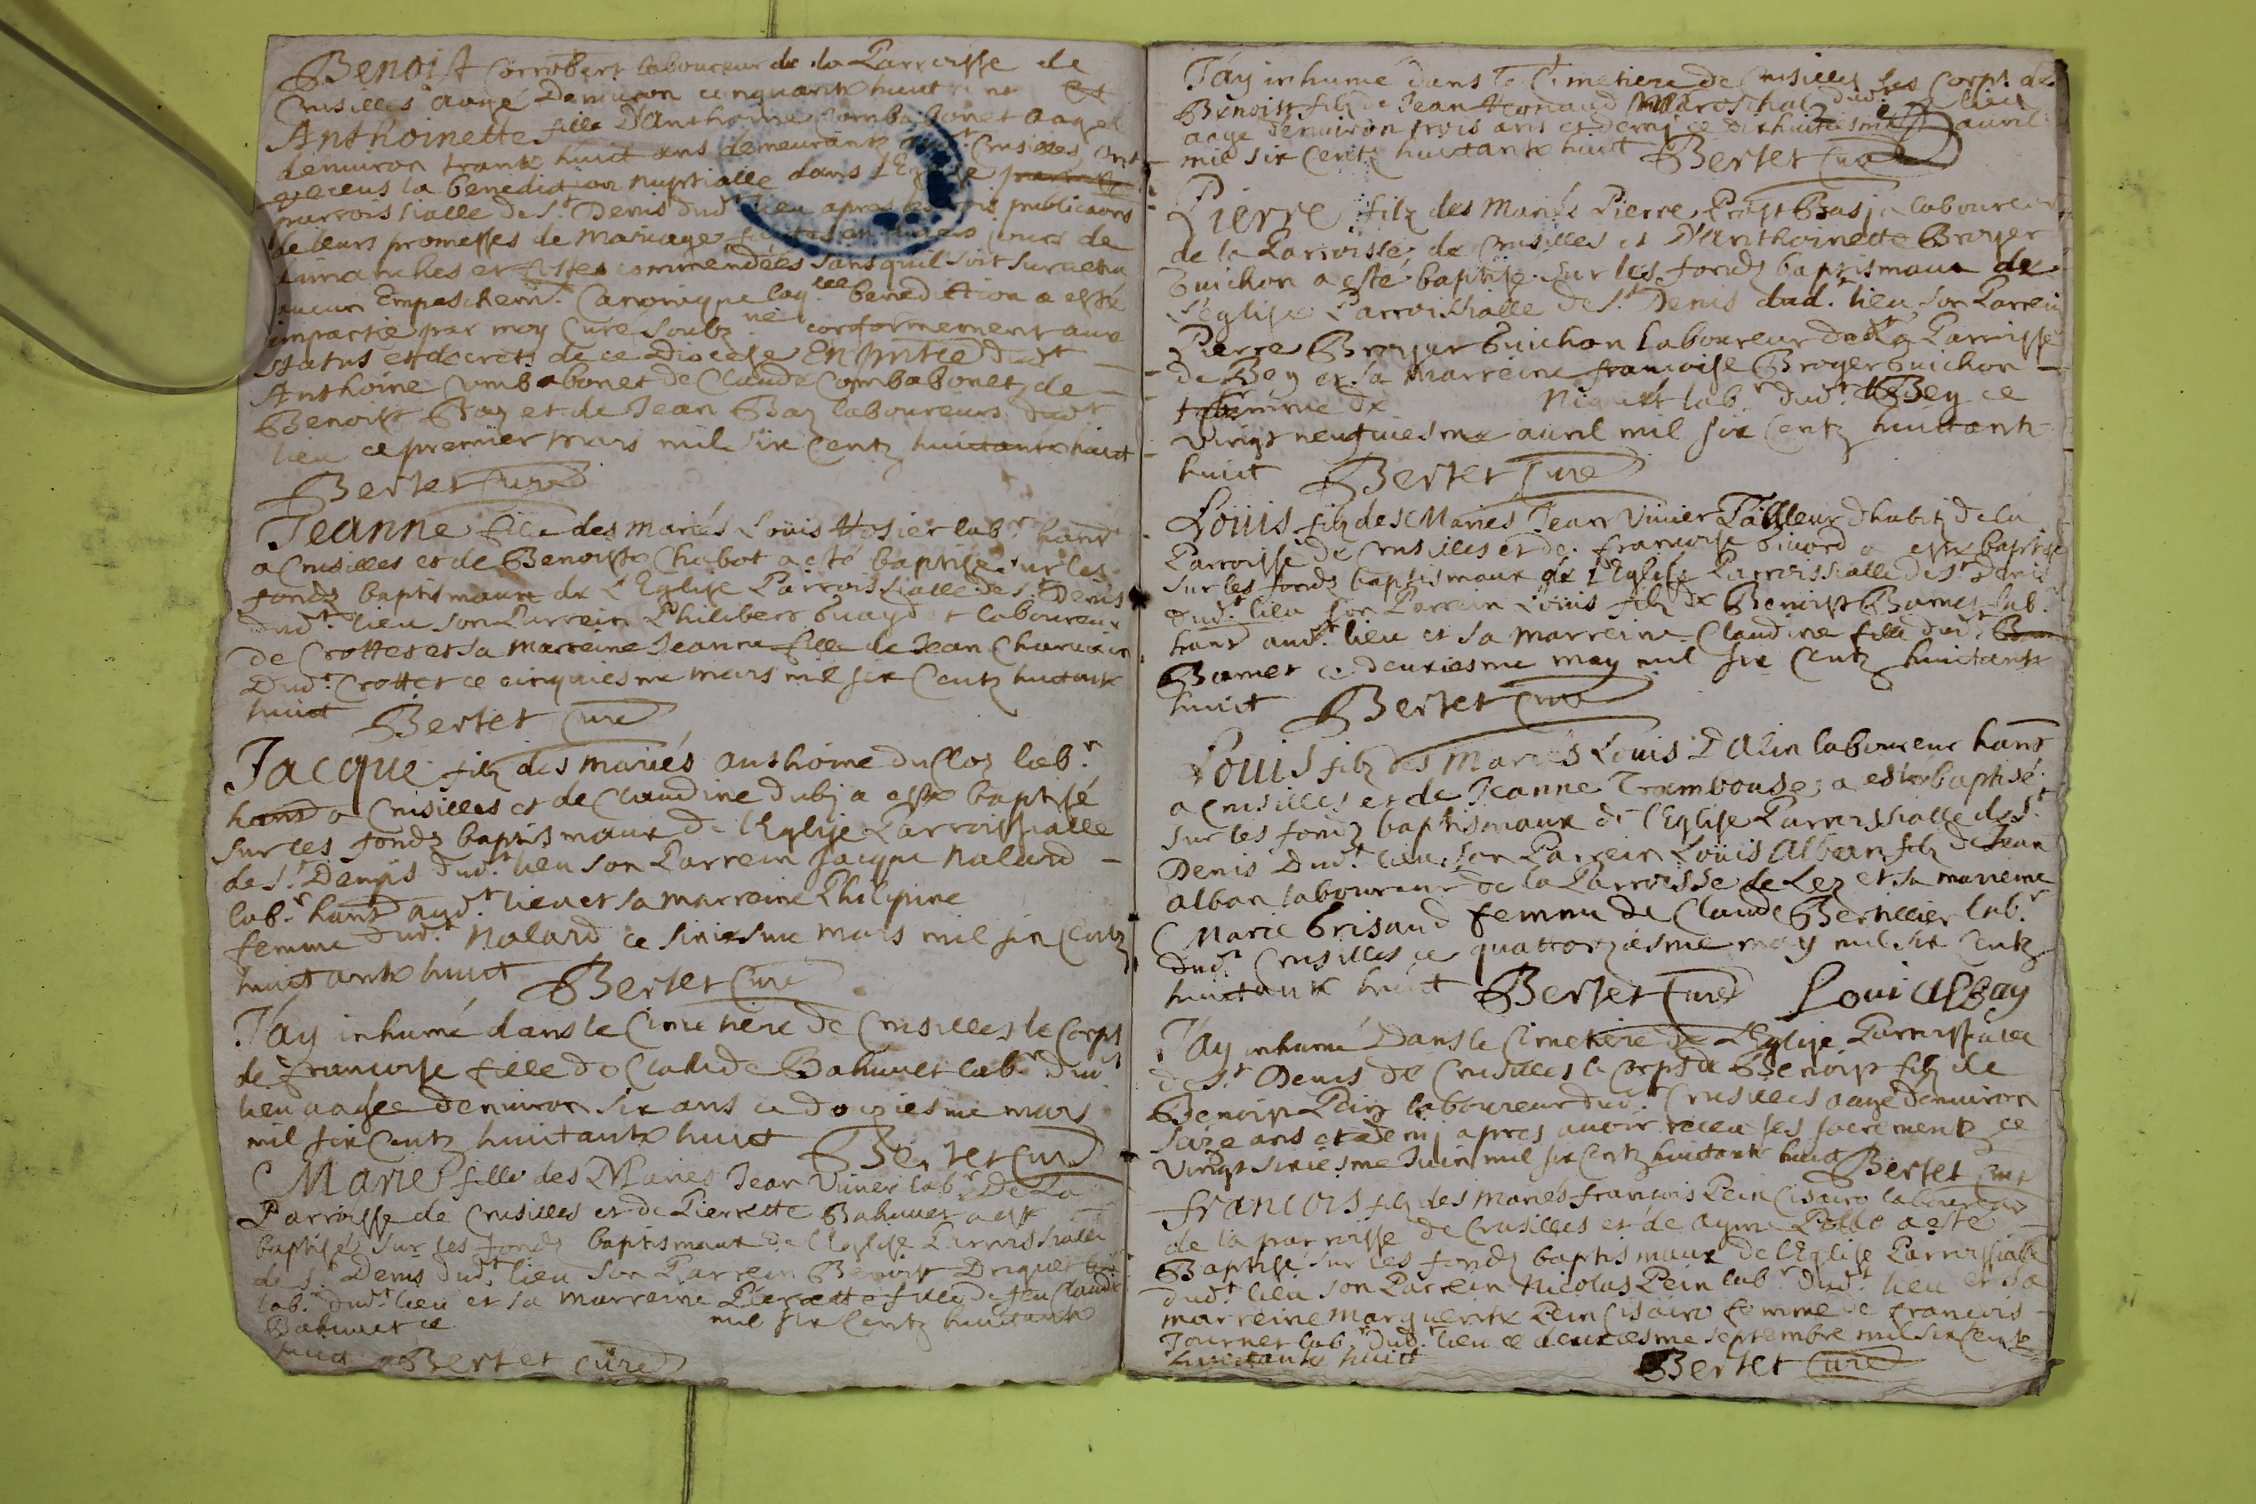 Benoist Corrobert laboureur de la Parroisse de
Crusilles aagé Denuiron cinquante huict et
Anthoinette fille D'anthoine Combabonet aagee
denuiron trante huict ans demeurante Crusilles, ont
receus la benediction nuptialle dans L'Eglise
parroissialle de St. Denis dudt lieu apres les trois publicaons
de leurs promesses de Mariage faites en jours de
dimanches et festes commendées sans quil soit suruenu
aucun Empeschemt. Canonique laqlle benediction a esté
impartie par moy Curé soubz né conformement aux
statuts et decrets de ce Diocese En pntce dudt
Anthoine Combabonet de Claude Combabonet, de
Benoist Bay et de Jean Bay laboureurs dudt
lieu ce premier mars mil six Centz huictante huict
Bertet Curé
Jeanne fille des mariés Loüis Hosier labr. hant
a Crusilles et de Benoiste Chabot a esté baptisé sur les
fondz baptismaux de L'Eglise Parroissialle de St. Denis
dudt. lieu son Parrein Philibert laboureur
de Crottet et sa marreine Jeanne fille de Jean
Dudt. Crottet ce cinquiesme mars mil six Centz huictante
huict Bertet Curé
Jacque filz des mariés anthoine du Cloz labr.
hant a Crusilles et de Claudine duby a esté baptisé
sur les fondz baptismaux de l'Eglise Parroissialle
de St. Denis dudt. lieu son Parrein Jacque Nalard
labr. hant audt. lieu et sa marreine Philipine
femme dudt. Nalard ce sixiesme mars mil six Centz
huictante huict Bertet Curé
J'ay inhumé dans le Cimetiere de Crusilles le Corps
de francoise fille de Claude Bahuuet labr. dudt
lieu aagee denuiron six ans ce douziesme mars
mil six Centz huictante huict Bertet Curé
Marie fille des Mariés Jean Viuier labr. De La
Parroisse de Crusilles et de Pierrette Bahuuet a esté
baptisé sur les fondz baptismaux de l'Eglise Parroissialle
de St. Denis dudt. lieu son Parrein Benoist Driquet
labr. dudt. lieu et sa marreine Pierrette fille de feu Claude
Bahuuet ce mil six Centz huictante
huict Bertet Curé
J'ay inhumé dans le Cimetiere de Crusilles les Corps de
Benoist filz de Jean Mareschal dudt. lieu
aagé denuiron trois ans et demy ce dixhuictiesme auril
mil six Centz huictante huict Bertet Curé
Pierre filz des Mariés Pierre Prost Basja laboureur
de la Parroisse de Crusilles et D'anthoinette Broyer
Guichon a esté baptisé sur les fondz baptismaux de
l'Eglise Parroissialle de St. Denis dud. lieu, son Parrein
Pierre Broyer Guichon laboureur de la Parroisse
de Bey et sa marreine francoise Broyer Guichon
femme de Niquet labr. dudt. Bey ce
vingt neufuiesme auril mil six Centz huictante
huict Bertet Curé
Loüis filz des Mariés Jean Viuier Tailleur d'habitz de la
Parroisse de Crusilles et de francoise Guiord a esté baptisé
sur les fondz baptismaux de L'Eglise Parroissialle de St. Denis
dudt. lieu son Parrein Loüis filz de Benoist Bamet labr.
hant audt. lieu et sa marreine Claudine fille dudt.
Bamet ce deuxiesme may mil six Centz huictante
huict Bertet Curé
Louis filz des Mariés Louis Dalin laboureur hant
a Crusilles et de Jeanne Trambouse, a esté baptisé
sur les fondz baptismaux de l'Eglise Parroissialle de St.
Denis Dudt. lieu, son Parrein Loüis Alban filz de Jean
alban laboureur de la Parroisse de Lez et sa marreine
Marie Grisaud femme de Claude Bertillier labr.
dudt. Crusilles ce quattorziesme may mil six Centz
huictante huict Bertet Curé Loui albay
J'ay inhumé Dans le Cimetiere de L'Eglise Parroissialle
de St. Denis de Crusilles le Corps de Benoist filz de
Benoist Pein laboureur dudt. Crusilles aagé denuiron
seize ans et demj apres auoir receu ses sacrementz ce
vingt sixiesme Juin mil six Centz huictante huict Bertet Curé
francois filz des mariés francois Pein Cisairo laboureur
de la parroisse de Crusilles et de ayme Pollo a esté
Baptisé sur les fondz baptismaux de l'Eglise Parroissialle
dudt. lieu son Parrein Nicolas Pein labr. dudt. lieu et sa
marreine Marguerite Pein Cisairo femme de francois
Tournet labr. dudt. lieu ce deuxiesme septembre mil six Centz
huictante huict
Bertet Curé